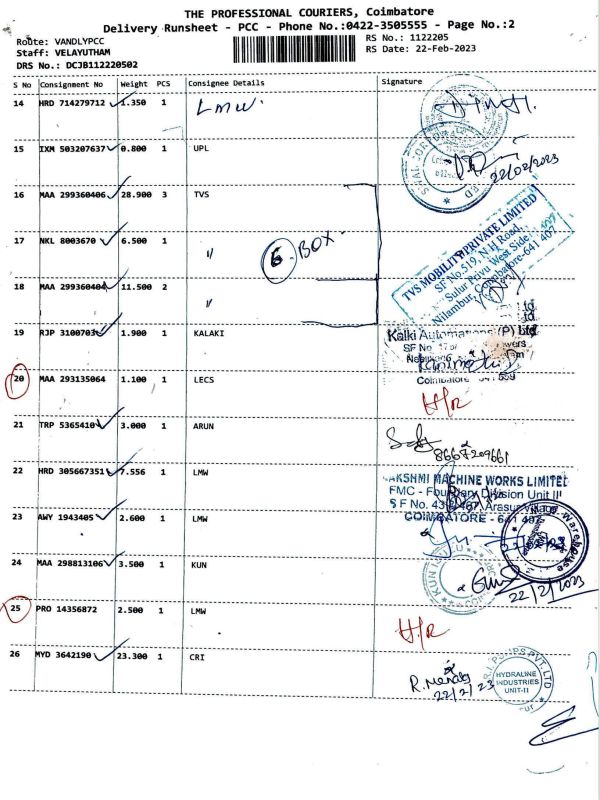 THE PROFESSIONAL COURIERS, Coimbatore
Delivery Runsheet - PCC - Phone No.:0422-3505555 - Page No.:2
Route: VANDLYPCC
RS No.: 1122205
Staff: VELAYUTHAM
RS Date: 22-Feb-2023
DRS No.: DCJB112220502
S No Consignment No Weight PCS Consignee Details Signature
14 HRD 714279712 1.350 1 LMW.
15 IXM 503207637 0.800 1 UPL
22/02/2023
16 MAA 299360406 28.900 3 TVS
TVS MOBILITY PRIVATE LIMITED
SF No.519, N H Road,
Sulur Pirivu West Side
Nilambur, Coimbatore-641 407
17 NKL 8003670 6.500 1 "
6 BOX
18 MAA 299360404 11.500 2 "
19 RJP 3100703 1.900 1 KALAKI
Kalki Automations (P) Ltd
SF No
Coimbatore
20 MAA 293135064 1.100 1 LECS
H/R
21 TRP 5365410 3.000 1 ARUN
8667209661
22 HRD 305667351 7.556 1 LMW
LAKSHMI MACHINE WORKS LIMITED
FMC - Foundry Division Unit II
COIMBATORE - 641 407
23 AWY 1943405 2.600 1 LMW
Warehouse
24 MAA 298813106 3.500 1 KUN
22/2/2023
25 PRO 14356872 2.500 1 LMW
H/R
26 MYD 3642190 23.300 1 CRI
22/2/23
HYDRALINE
INDUSTRIES
UNIT-II